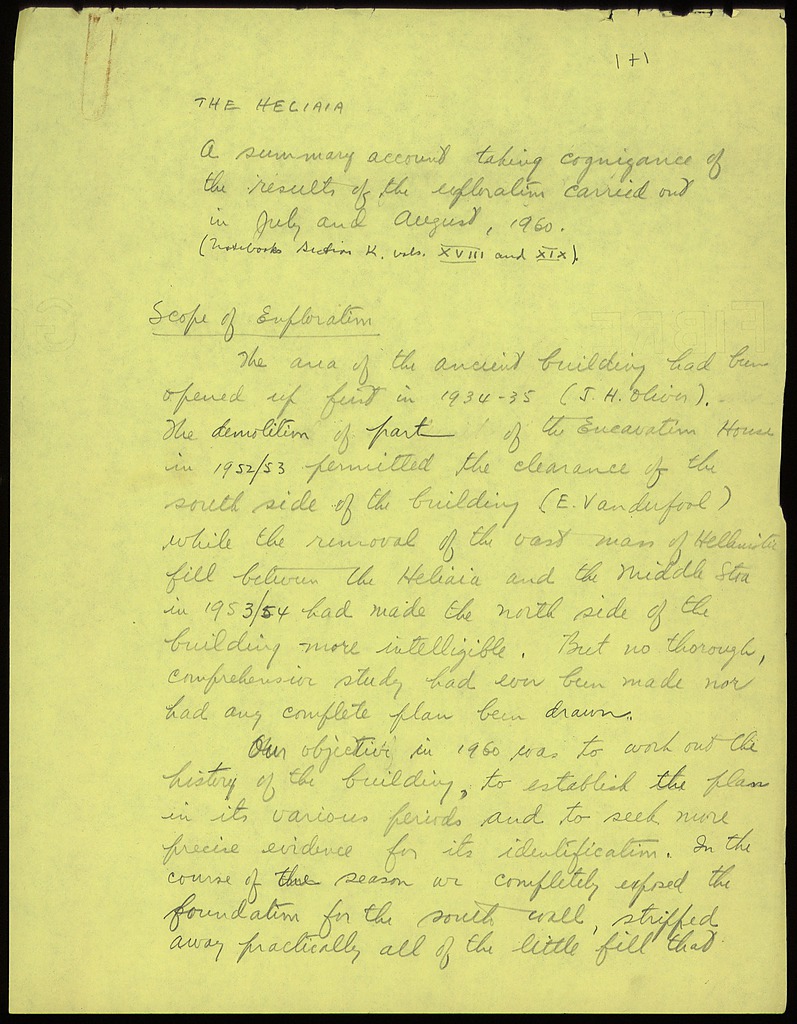 1+1
THE HELIAIA
A summary account taking cognizance of
the results of the exploration carried out
in July and August, 1960.
(Notebooks Section K. vols. XVIII and XIX).
Scope of Exploration
The area of the ancient building had been
opened up first in 1934-35 (J. H. Oliver).
The demolition of part of the Excavation House
in 1952/53 permitted the clearance of the
south side of the building (E. Vanderpool)
while the removal of the vast mass of Hellenistic
fill between the Heliaia and the Middle Stoa
in 1953/54 had made the north side of the
building more intelligible. But no thorough,
comprehensive study had ever been made nor
had any complete plan been drawn.
Our objective in 1960 was to work out the
history of the building, to establish the plan
in its various periods and to seek more
precise evidence for its identification. In the
course of the season we completely exposed the
foundation for the south wall, stripped
away practically all of the little fill that